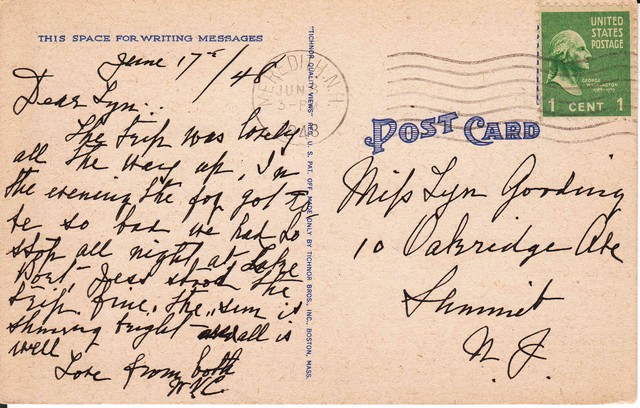 THIS SPACE FOR WRITING MESSAGES
June 17th/48
Dear Lyn..
The trip was lovely
all the way up, In
the evening the fog got to
be so bad we had to
stop all night at Lake
Port, Jess stood the
trip fine. The sun is
shinning bright and all is
well
Love from both
"TICHNOR QUALITY VIEWS" REG. U. S. PAT. OFF. MADE ONLY BY TICHNOR BROS., INC., BOSTON, MASS.
MEREDITH, N.H.
JUN
3-P
48
UNITED
STATES
POSTAGE
GEORGE
WASHINGTON
1 CENT 1
POST CARD
Miss Lyn Gooding
10 Oakridge Ave
Summit
N. J.